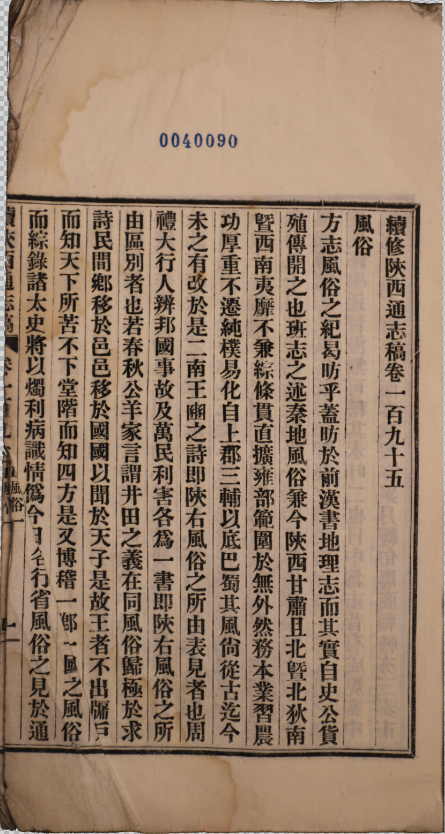 0040090
續修陝西通志稿卷一百九十五
風俗
方志風俗之紀曷昉乎蓋昉於前漢書地理志而其實自史公貨
殖傳開之也班志之述秦地風俗兼今陝西甘肅且北曁北狄南
曁西南夷靡不兼綜條貫直擴雍部範圍於無外然務本業習農
功厚重不遷純樸易化自上郡三輔以底巴蜀其風尚從古迄今
未之有改於是二南王豳之詩即陝右風俗之所由表見者也周
禮大行人辨邦國事故及萬民利害各爲一書即陝右風俗之所
由區別者也若春秋公羊家言謂井田之義在同風俗歸極於求
詩民間鄕移於邑邑移於國國以聞於天子是故王者不出牖戶
而知天下所苦不下堂階而知四方是又博稽一鄕一風之風俗
而綜錄諸太史將以燭利病識情爲今日各行省風俗之見於通
續陝西通志稿 卷一百九 風俗一